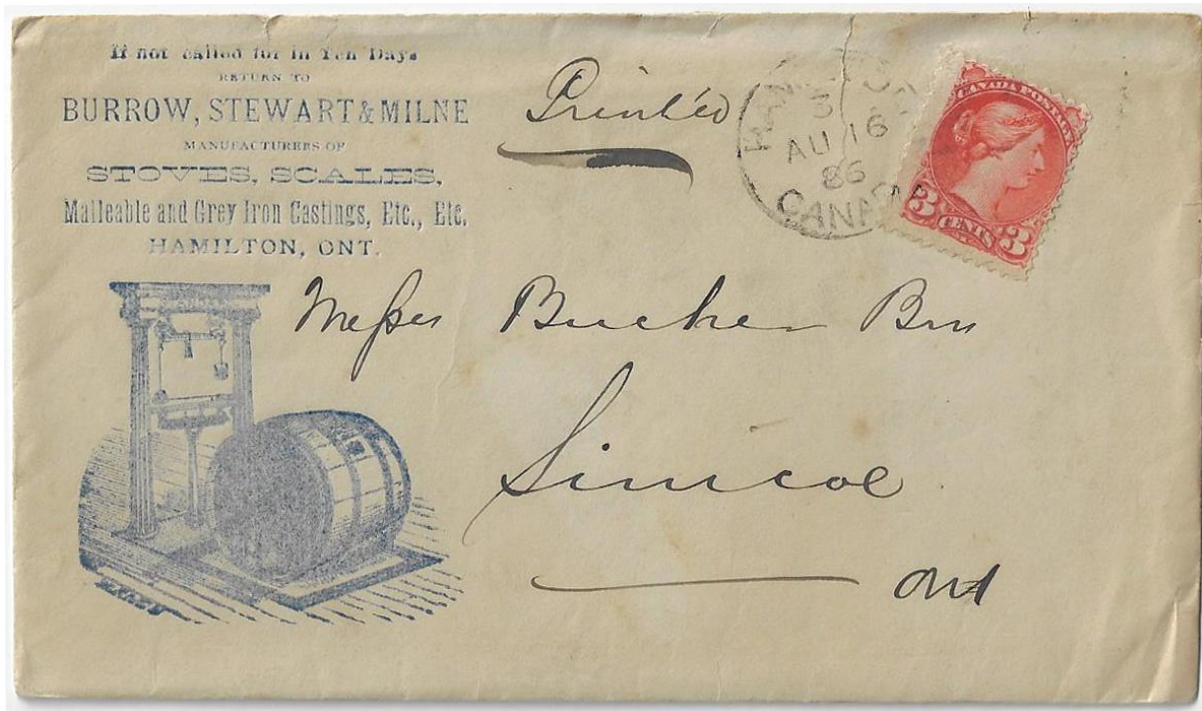 If not called for in Ten Days
RETURN TO
BURROW, STEWART & MILNE
MANUFACTURERS OF
STOVES, SCALES,
Malleable and Grey Iron Castings, Etc., Etc.
HAMILTON, ONT.
Printed
3
AU 16
86
CANADA
CANADA POSTAGE
3 CENTS 3
Messrs Bucher Bros
Simcoe
Ont